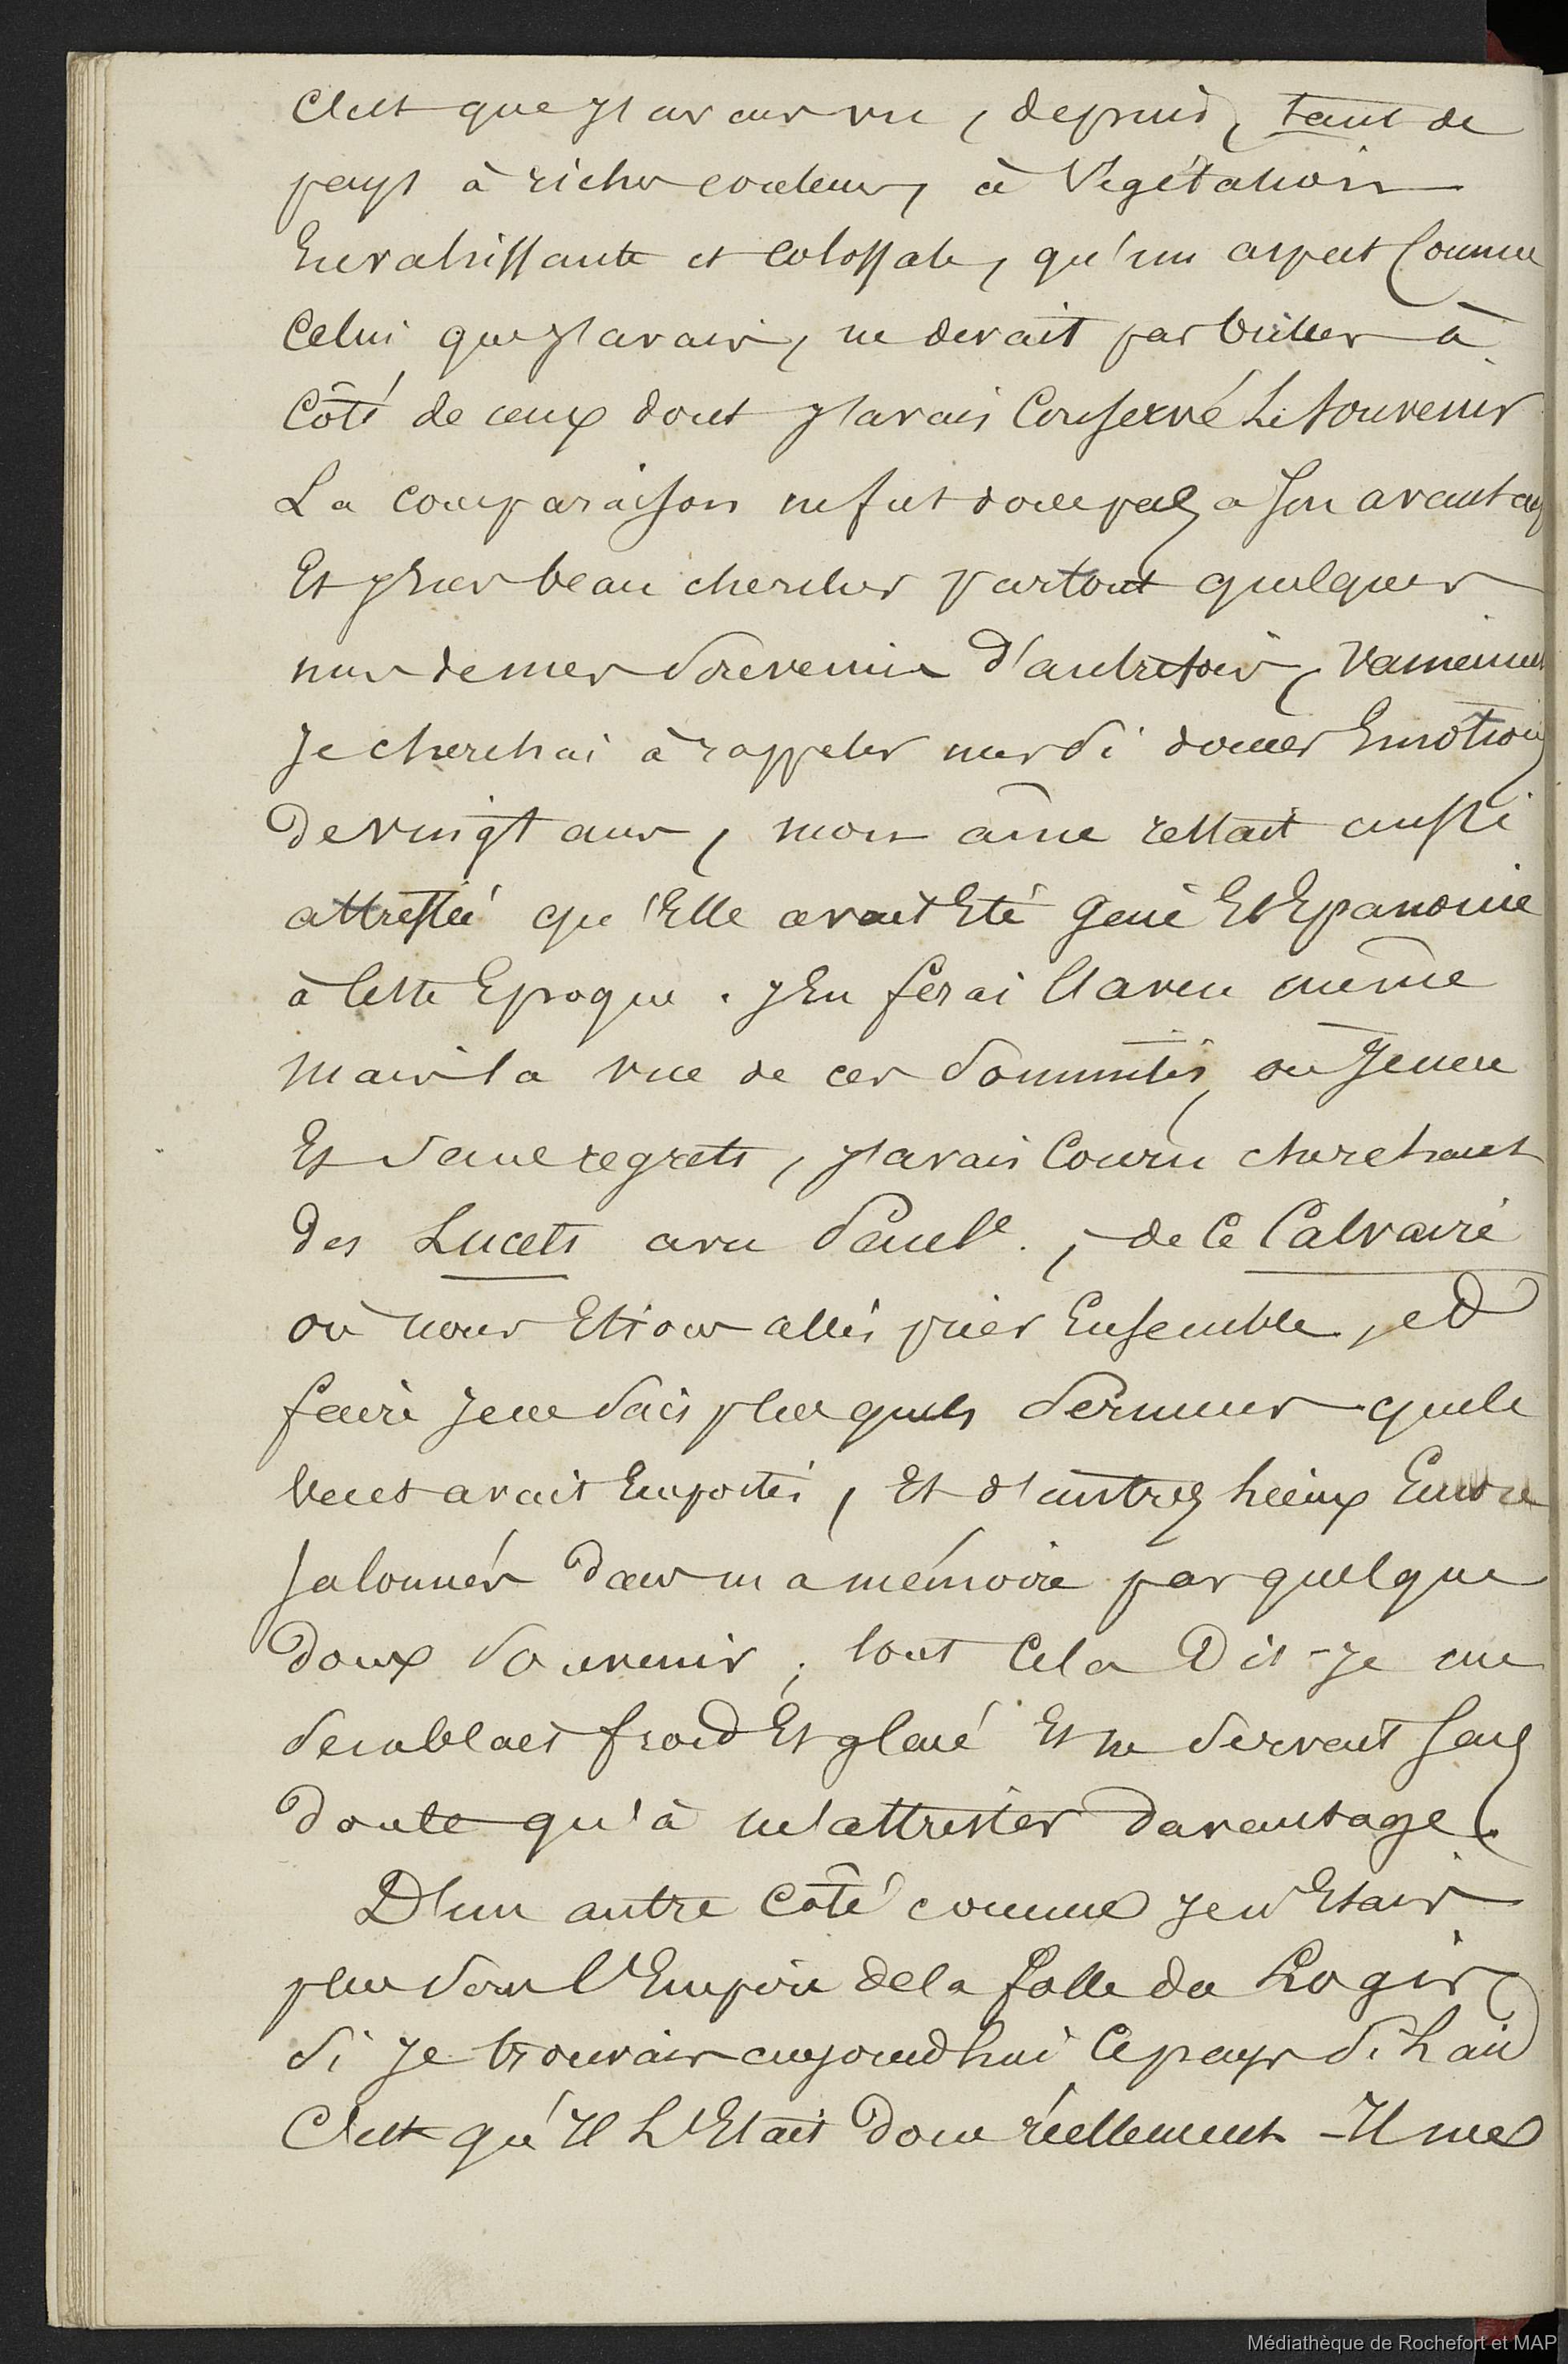 C'est que j'avais vu, depuis, tant de
pays à riches couleurs, à Végétation
Envahissante et Colossale, qu'un aspect Comme
Celui que j'avais, ne devait pas briller à
Côté de ceux dont j'avais Conservé Le souvenir
La comparaison ne fut donc pas a son avantage
Et j'Eus beau chercher partout quelques
uns de mes Souvenirs d'autrefois, Vainement
Je cherchai à rappeler mes Si douces Emotions
De vingt ans, mon âme restait aussi
attristée qu'Elle avait Eté gaie Et Epanouie
à Cette Epoque. J'En ferai l'aveu même
Mais la vue de ces Sommités, où Jeune
Et Sans regrets, j'avais Couru cherchant
Des Lucets avec Paul., de Ce Calvaire
où nous Etions allés prier Ensemble, et
faire je ne Sais plus quels Sermens que le
Vent avait Emportés, Et d'autres Lieux Encore
Jalonnés Dans ma mémoire par quelque
Doux Souvenir; tout Cela Dis-je me
Semblait froid Et glacé Et ne Servait sans
Doute qu'à m'attrister Davantage.
D'un autre Côté comme je n'Etais
plus Sous l'Empire de la folle du Logis,
Si je trouvais aujourd'hui Ce pays Si Laid
C'est qu'Il L'Etait Donc réellement - Il me
Médiathèque de Rochefort et MAP